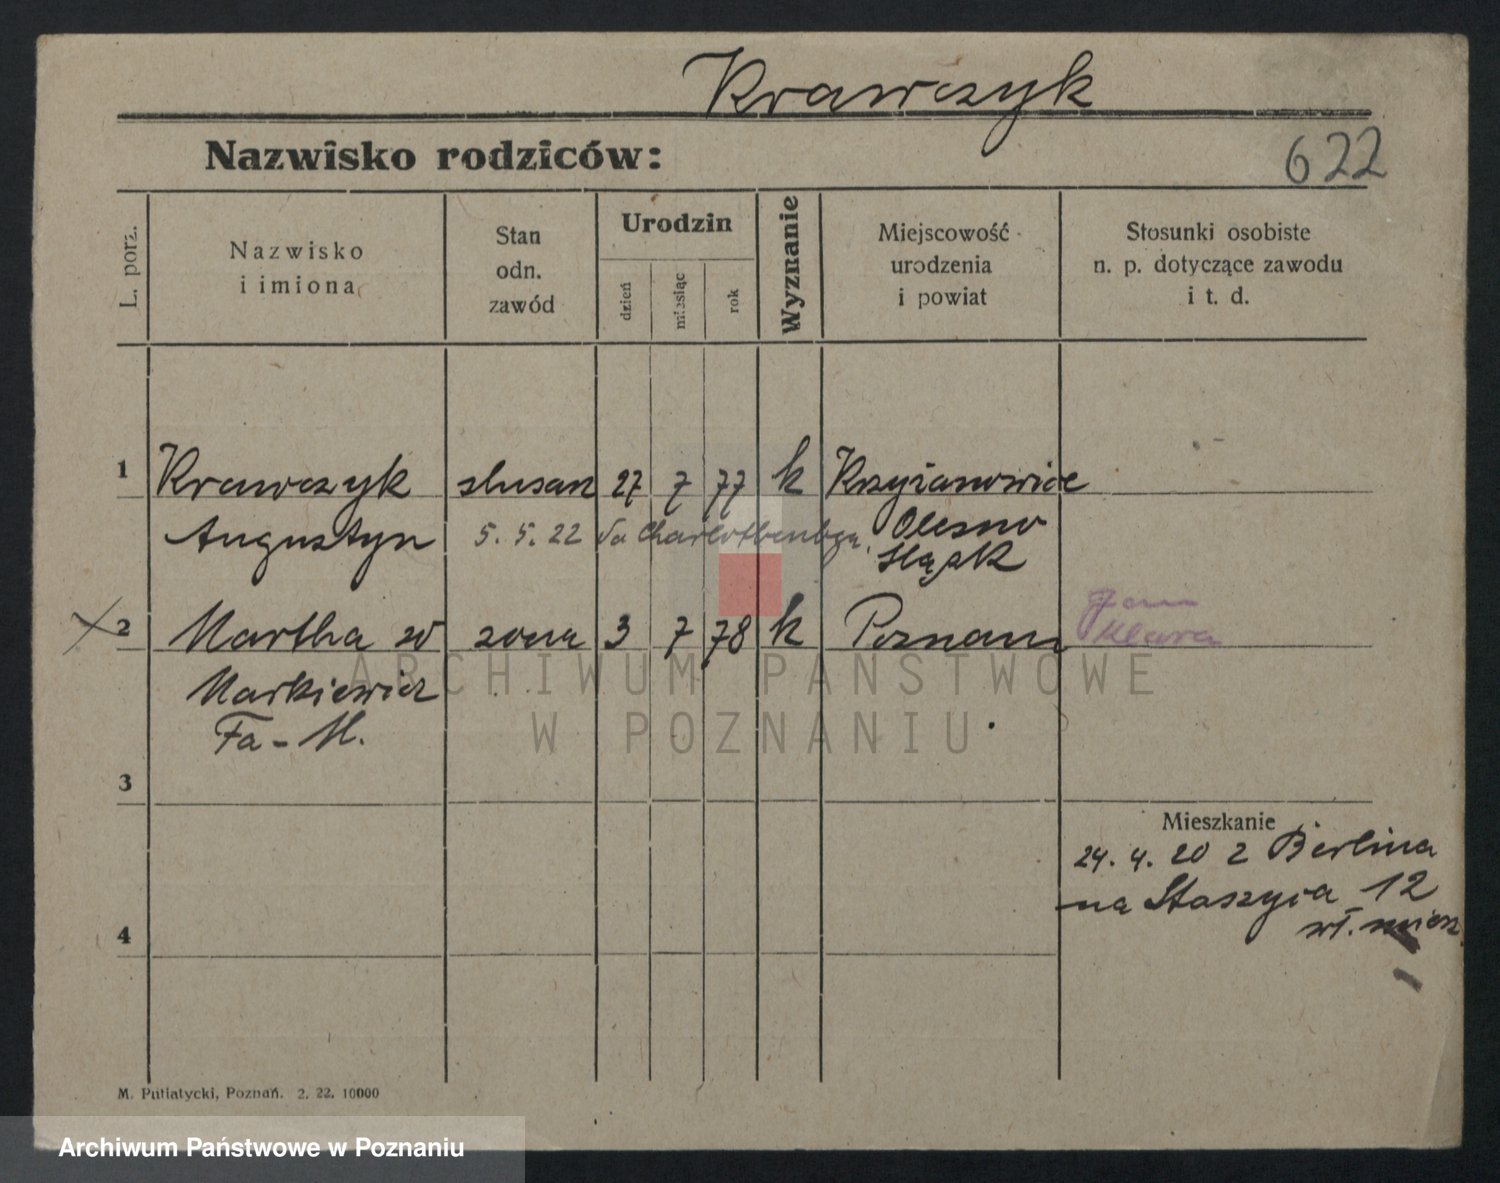 Krawczyk
Nazwisko rodziców:
622
L. porz.
Nazwisko
i imiona
Stan
odn.
zawód
Urodzin
dzień
miesiąc
rok
Wyznanie
Miejscowość
urodzenia
i powiat
Stosunki osobiste
n. p. dotyczące zawodu
i t. d.
1 Krawczyk slusarz 27 7 77 k Krzyżanowice
Augustyn 5. 5. 22 Olesno
Śląsk
2 Martha zd żona 3 7 78 k Poznań
Klara
Markiewicz
Fa - M.
3
Mieszkanie
24. 4. 20 z Berlina
na Staszyca 12
4
M. Putiatycki, Poznań. 2. 22. 10000
ARCHIWUM PAŃSTWOWE
W POZNANIU
Archiwum Państwowe w Poznaniu